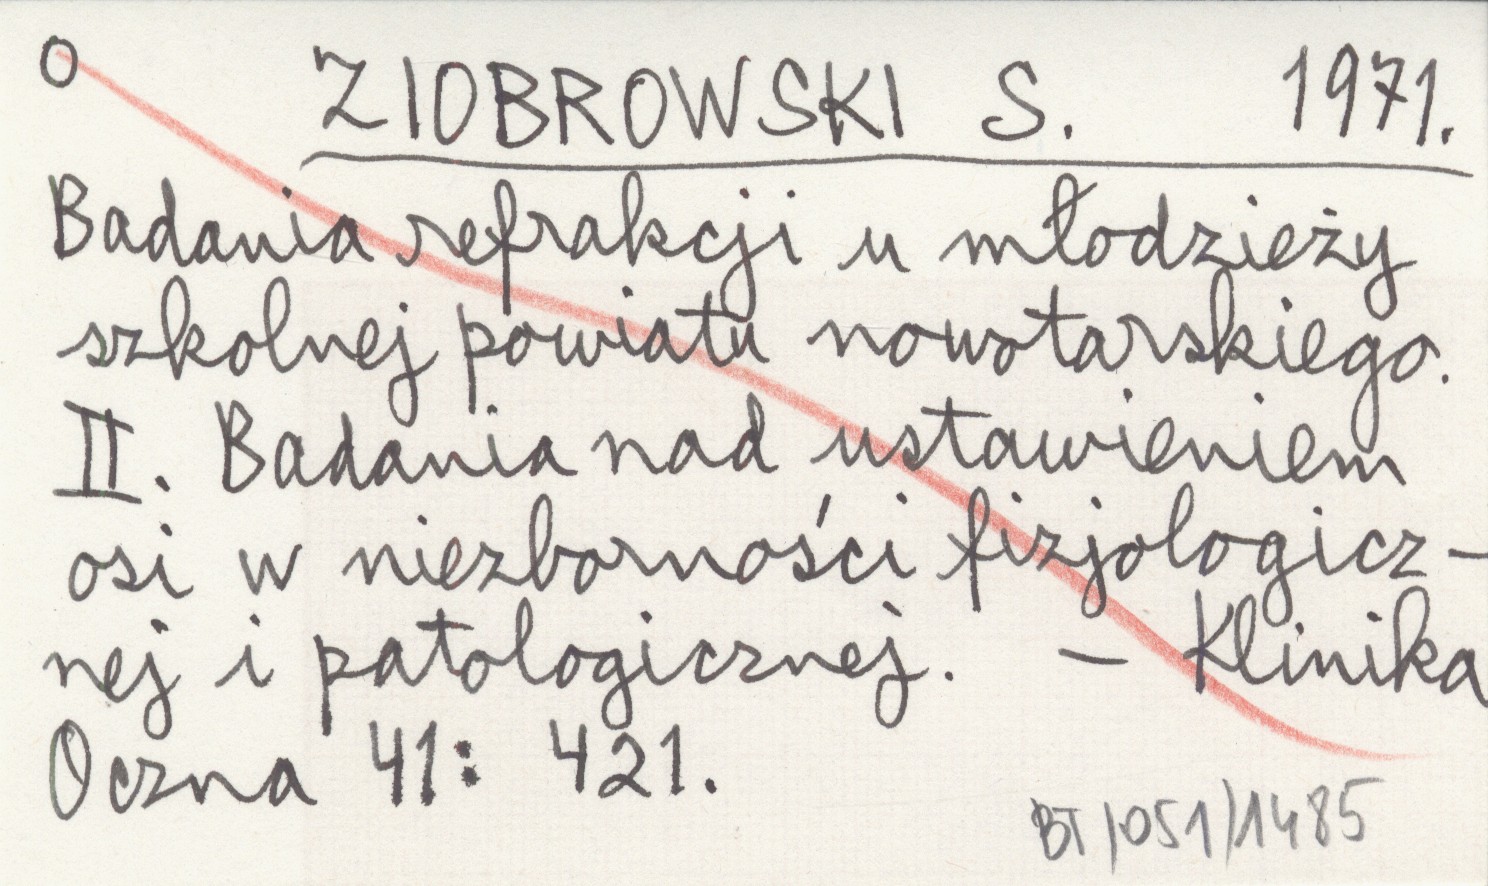 O ZIOBROWSKI S. 1971.
Badania refrakcji u młodzieży
szkolnej powiatu nowotarskiego.
II. Badania nad ustawieniem
osi w niezborności fizjologicz-
nej i patologicznej. - Klinika
Oczna 41: 421.
BT/051/1485